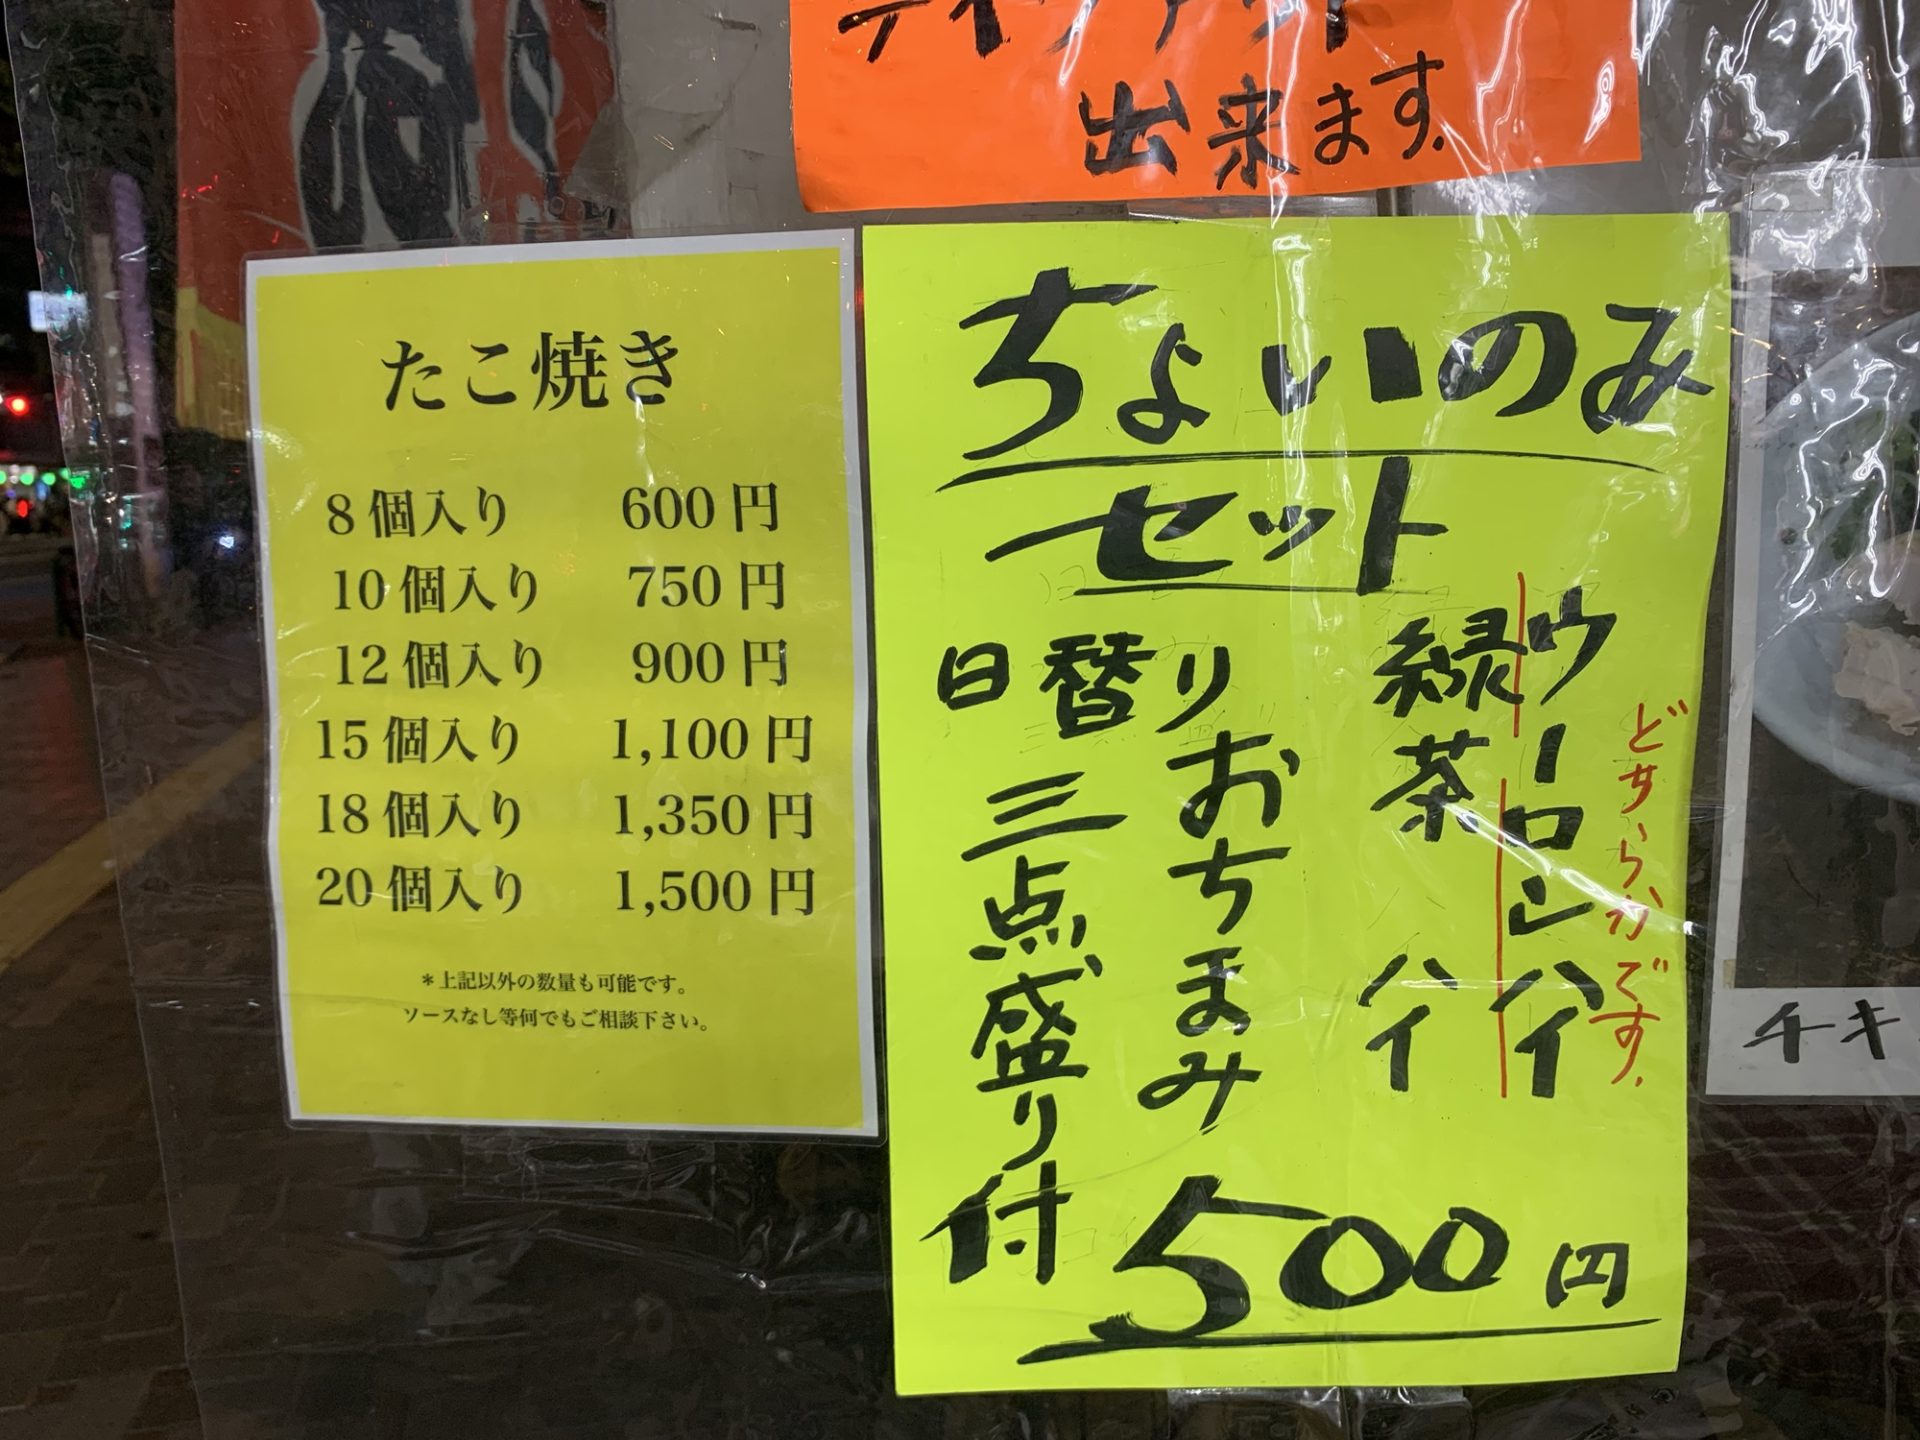 出来ます.
たこ焼き
8個入り 600円
10個入り 750円
12個入り 900円
15個入り 1,100円
18個入り 1,350円
20個入り 1,500円
*上記以外の数量も可能です。
ソースなし等何でもご相談下さい。
ちょいのみ
セット
どちらかです.
ウーロンハイ
緑茶ハイ
日替りおちまみ
三点盛り付
500円
チキ